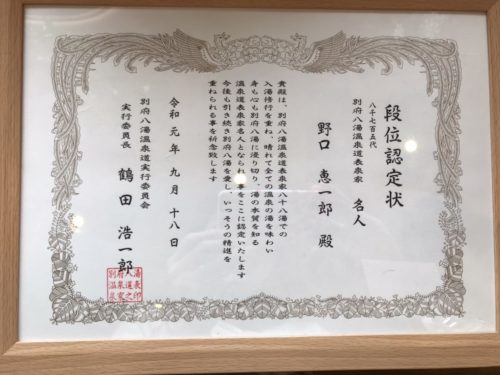 段位認定状
八千七百五代
別府八湯温泉道表泉家 名人
野口 恵一郎 殿
貴殿は、別府八湯温泉道表泉家八十八湯での
入湯修行を重ね、晴れて全ての温泉の湯を味わい
身も心も別府八湯に浸り切り、湯の本質を知る
温泉道表泉家名人となられた事をここに認定いたします
今後も引き続き別府八湯を愛し、いっそうの精進を
重ねられる事を祈念致します
令和元年九月十八日
別府八湯温泉道実行委員会
実行委員長 鶴田 浩一郎